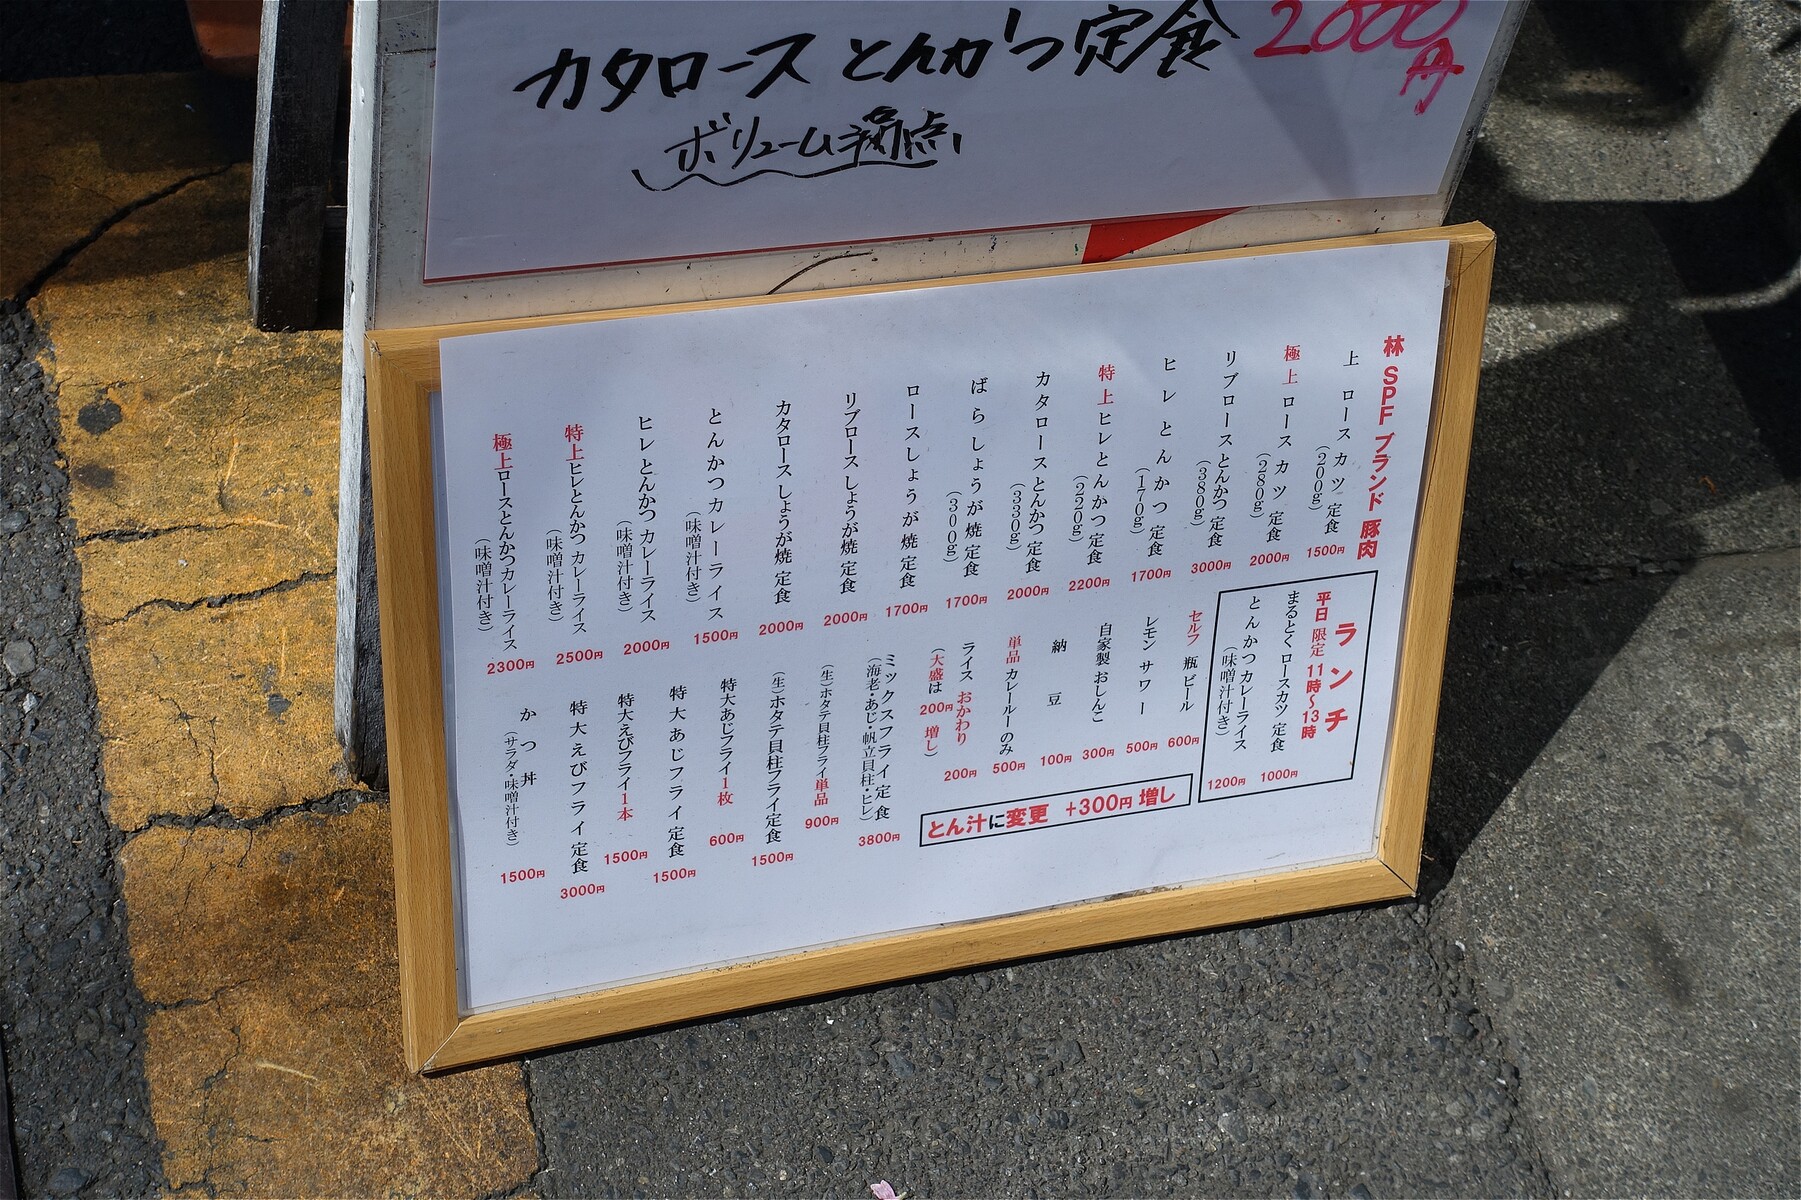 カタロースとんかつ定食 2000円
ボリューム満点
林 SPF ブランド 豚肉
上 ロースカツ 定食
(200g)
1500円
極上 ロースカツ 定食
(280g)
2000円
リブロースとんかつ 定食
(380g)
3000円
ヒレとんかつ 定食
(170g)
1700円
特上ヒレとんかつ 定食
(220g)
2200円
カタロースとんかつ 定食
(330g)
2000円
ばらしょうが焼 定食
(300g)
1700円
ロースしょうが焼 定食
1700円
リブロースしょうが焼 定食
2000円
カタロースしょうが焼 定食
2000円
とんかつカレーライス
(味噌汁付き)
1500円
ヒレとんかつ カレーライス
(味噌汁付き)
2000円
特上ヒレとんかつ カレーライス
(味噌汁付き)
2500円
極上ロースとんかつカレーライス
(味噌汁付き)
2300円
ランチ
平日 限定 11時～13時
まるとくロースカツ 定食
1000円
とんかつカレーライス
(味噌汁付き)
1200円
セルフ 瓶ビール
600円
レモンサワー
500円
自家製おしんこ
300円
納豆
100円
単品 カレールーのみ
500円
ライス おかわり
200円
(大盛は 200円 増し)
とん汁に変更 +300円 増し
ミックスフライ定食
(海老・あじ・帆立貝柱・ヒレ)
3800円
(生)ホタテ貝柱フライ単品
900円
(生)ホタテ貝柱フライ定食
1500円
特大あじフライ1枚
600円
特大あじフライ 定食
1500円
特大えびフライ1本
1500円
特大えびフライ 定食
3000円
かつ丼
(サラダ・味噌汁付き)
1500円